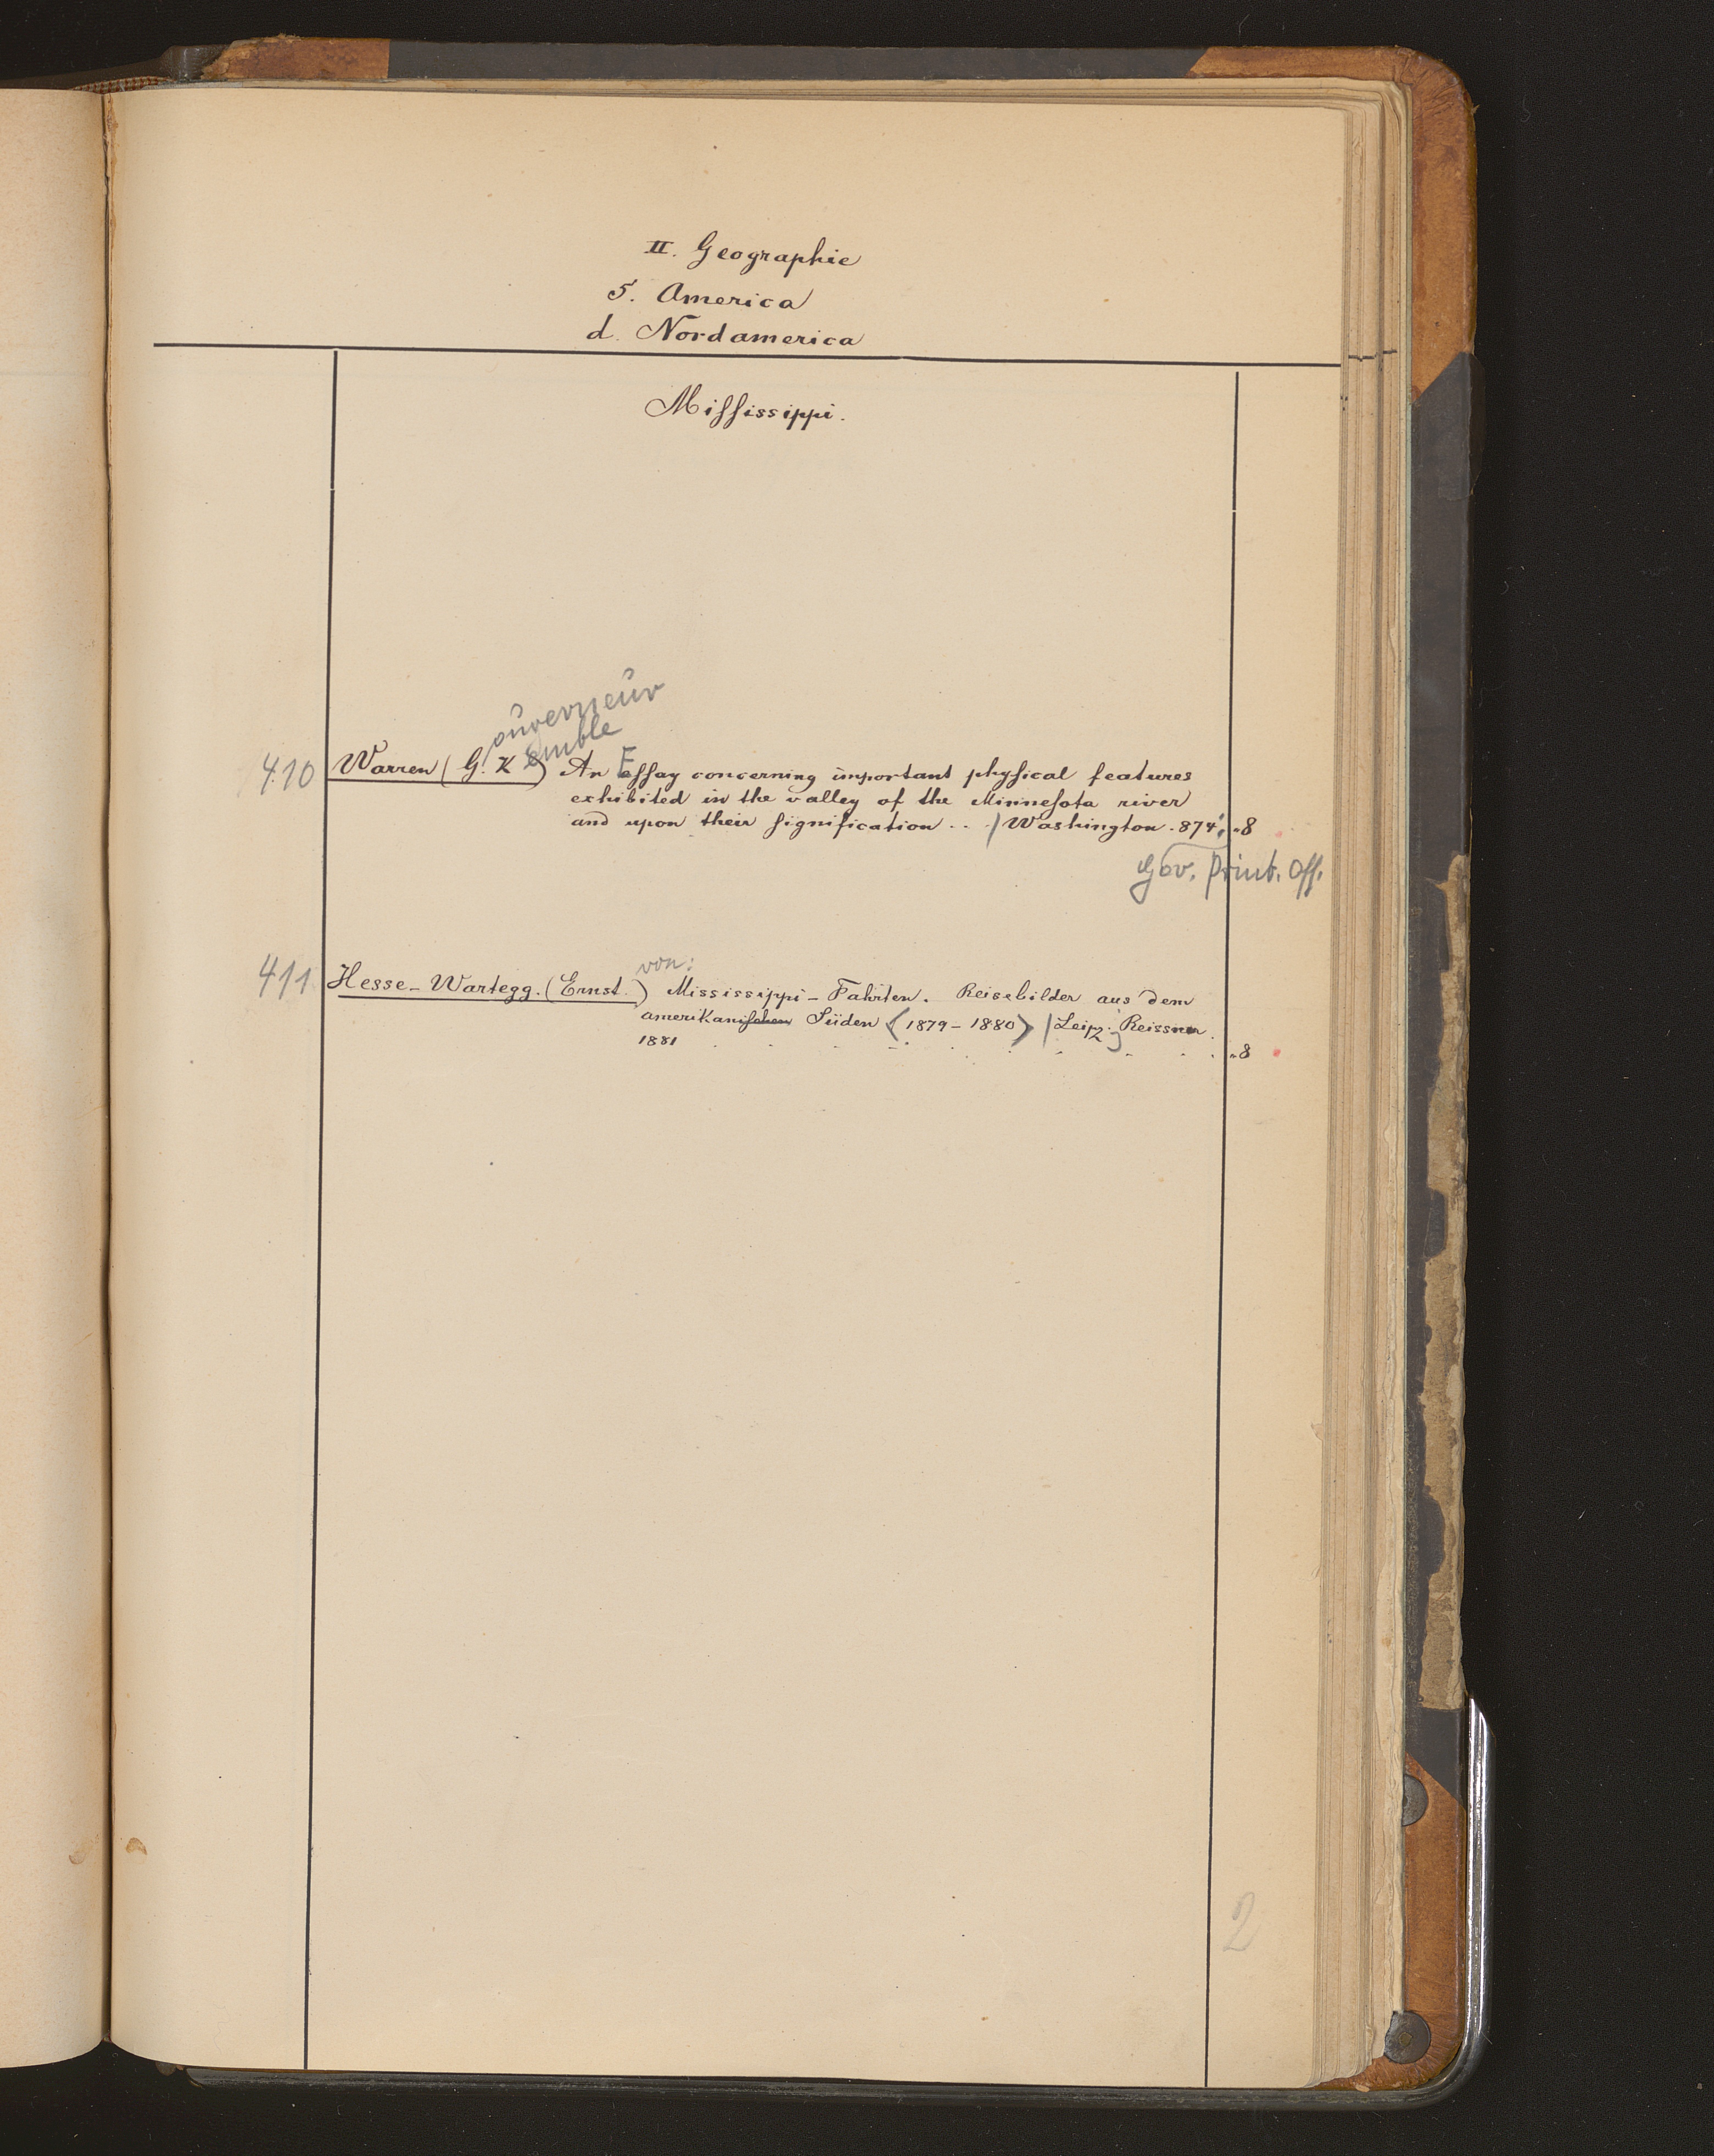 II. Geographie
5. America
d. Nordamerica
Miſsissippi.
ouverneur
emble
410 Warren (G. K.) An Eſsay concerning important phyſical features
exhibited in the valley of the Minneſota river
and upon their ſignification . . . / Washington . 874: „8
Gov. Print. Off.
von:
411. Hesse-Wartegg. (Ernst.) Mississippi-Fahrten. Reisebilder aus dem
amerikaniſchen Süden (1879-1880) / Leipz. Reissner.
1881 . . . . . . . . . „8
2